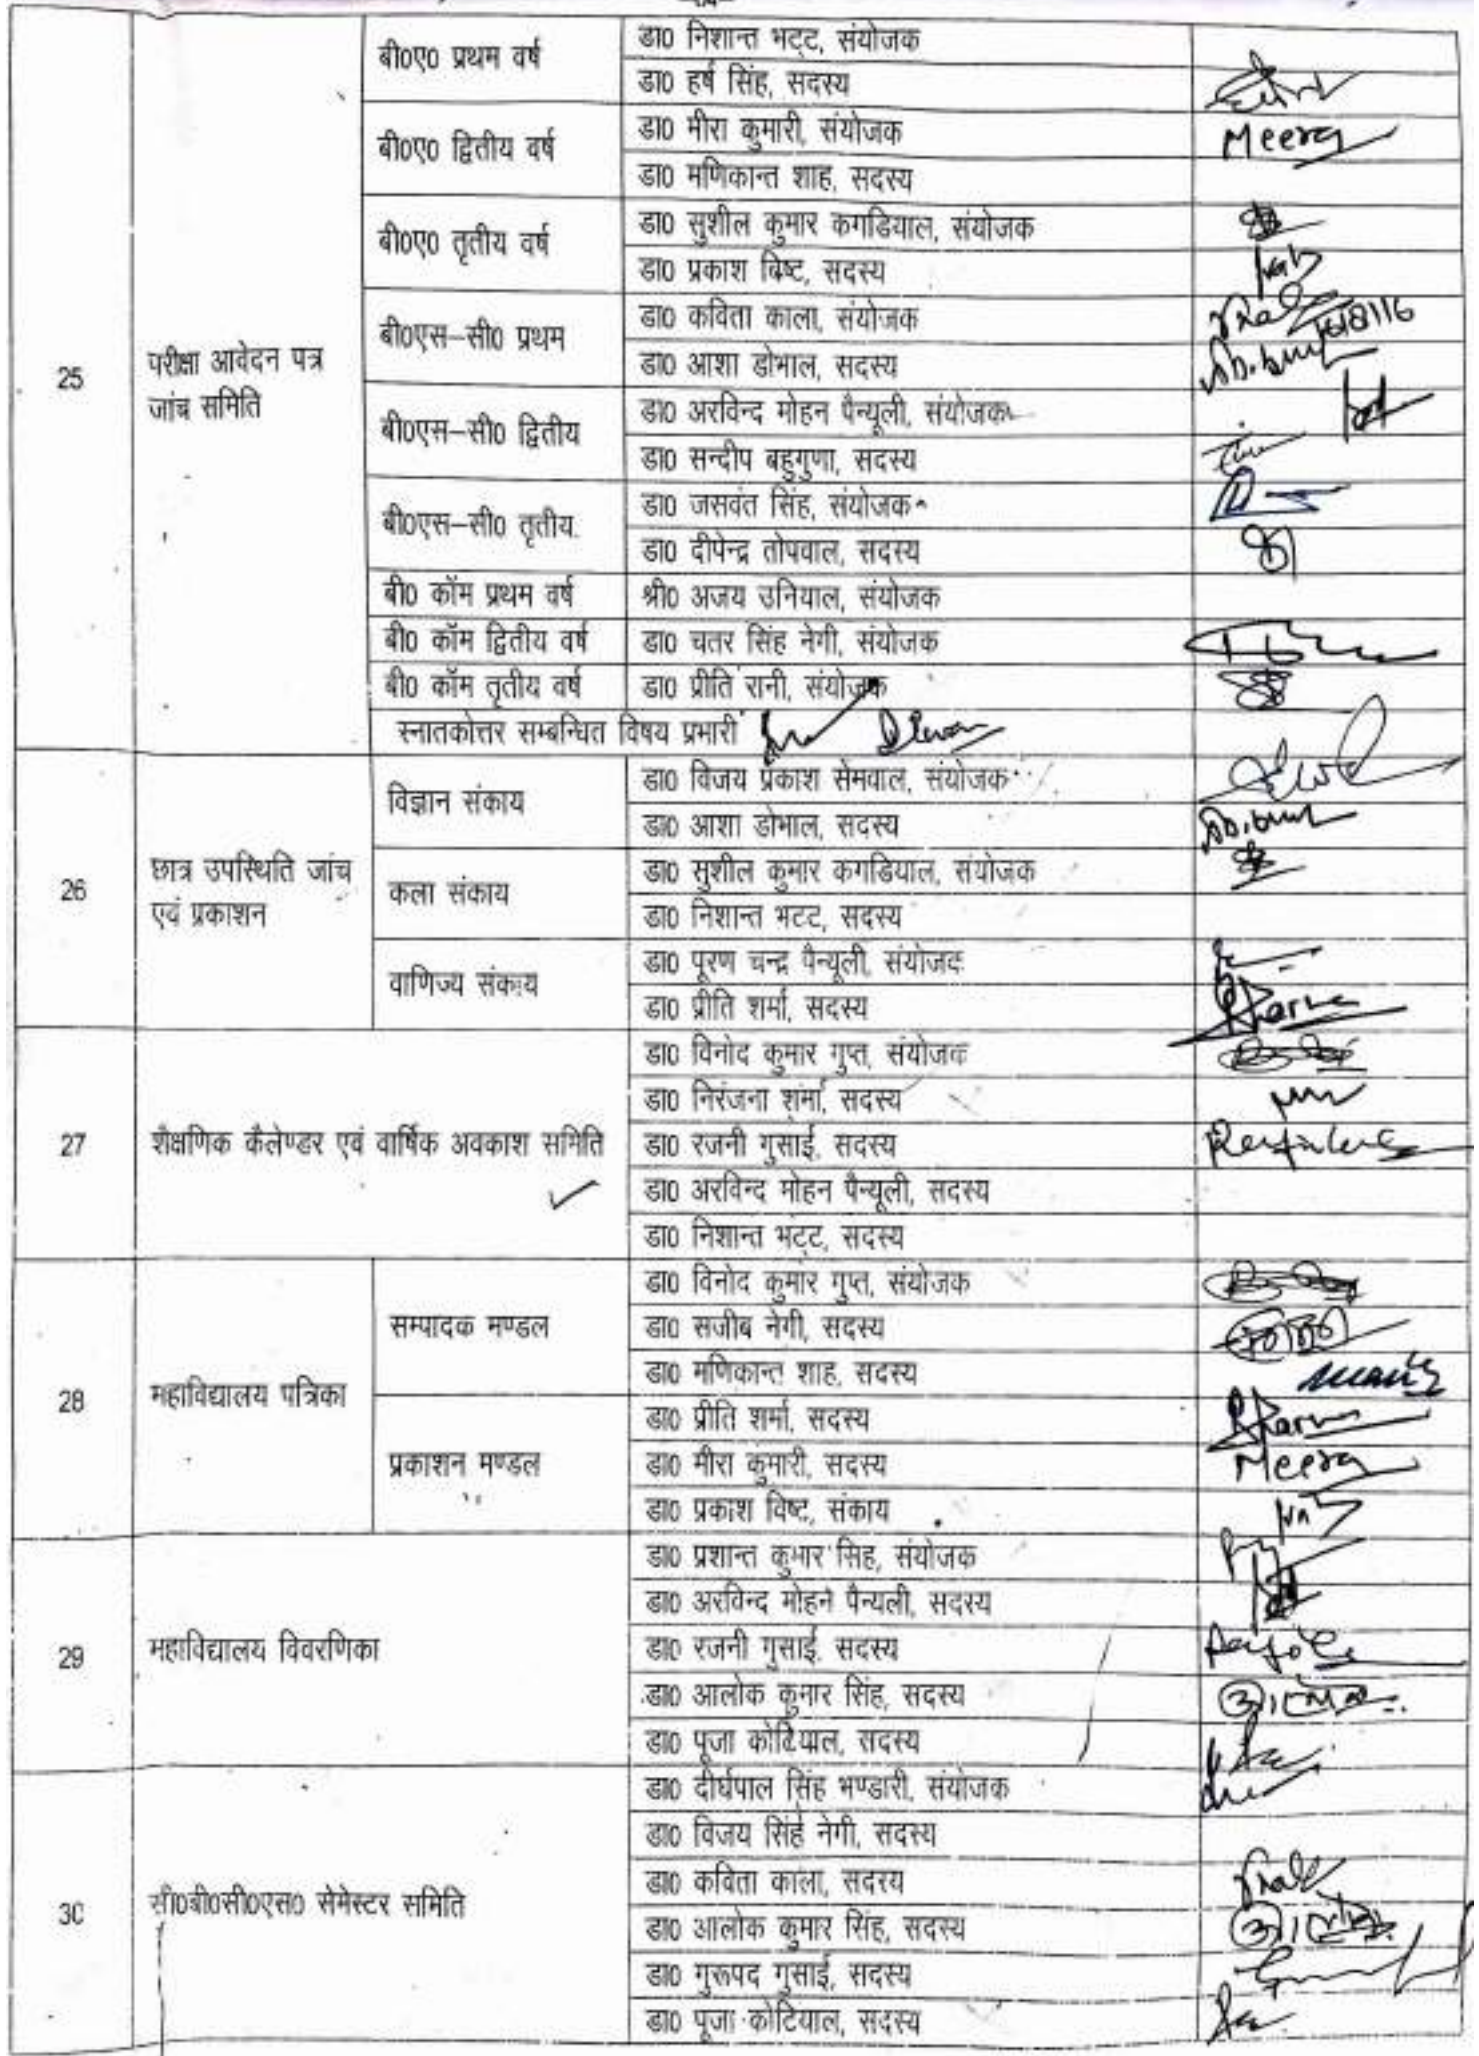 बी0ए0 प्रथम वर्ष
डा0 निशान्त भट्ट, संयोजक
डा0 हर्ष सिंह, सदस्य
बी0ए0 द्वितीय वर्ष
डा0 मीरा कुमारी, संयोजक
Meera
डा0 मणिकान्त शाह, सदस्य
बी0ए0 तृतीय वर्ष
डा0 सुशील कुमार कगडियाल, संयोजक
डा0 प्रकाश बिष्ट, सदस्य
25
परीक्षा आवेदन पत्र
जांच समिति
बी0एस–सी0 प्रथम
डा0 कविता काला, संयोजक
डा0 आशा डोभाल, सदस्य
बी0एस–सी0 द्वितीय
डा0 अरविन्द मोहन पैन्यूली, संयोजक
डा0 सन्दीप बहुगुणा, सदस्य
बी0एस–सी0 तृतीय
डा0 जसवंत सिंह, संयोजक
डा0 दीपेन्द्र तोपवाल, सदस्य
बी0 कॉम प्रथम वर्ष
श्री0 अजय उनियाल, संयोजक
बी0 कॉम द्वितीय वर्ष
डा0 चतर सिंह नेगी, संयोजक
बी0 कॉम तृतीय वर्ष
डा0 प्रीति रानी, संयोजक
स्नातकोत्तर सम्बन्धित विषय प्रभारी
26
छात्र उपस्थिति जांच
एवं प्रकाशन
विज्ञान संकाय
डा0 विजय प्रकाश सेमवाल, संयोजक
डा0 आशा डोभाल, सदस्य
कला संकाय
डा0 सुशील कुमार कगडियाल, संयोजक
डा0 निशान्त भटट, सदस्य
वाणिज्य संकाय
डा0 पूरण चन्द्र पैन्यूली, संयोजक
डा0 प्रीति शर्मा, सदस्य
27
शैक्षणिक कैलेण्डर एवं वार्षिक अवकाश समिति
डा0 विनोद कुमार गुप्त, संयोजक
डा0 निरंजना शर्मा, सदस्य
डा0 रजनी गुसाई, सदस्य
डा0 अरविन्द मोहन पैन्यूली, सदस्य
डा0 निशान्त भट्ट, सदस्य
28
महाविद्यालय पत्रिका
सम्पादक मण्डल
डा0 विनोद कुमार गुप्त, संयोजक
डा0 सजीब नेगी, सदस्य
डा0 मणिकान्त शाह, सदस्य
प्रकाशन मण्डल
डा0 प्रीति शर्मा, सदस्य
डा0 मीरा कुमारी, सदस्य
Meera
डा0 प्रकाश विष्ट, संकाय
29
महाविद्यालय विवरणिका
डा0 प्रशान्त कुमार सिह, संयोजक
डा0 अरविन्द मोहन पैन्यली, सदस्य
डा0 रजनी गुसाई, सदस्य
डा0 आलोक कुमार सिंह, सदस्य
डा0 पूजा कोटियाल, सदस्य
30
सी0बी0सी0एस0 सेमेस्टर समिति
डा0 दीर्घपाल सिंह भण्डारी, संयोजक
डा0 विजय सिंह नेगी, सदस्य
डा0 कविता काला, सदस्य
डा0 आलोक कुमार सिंह, सदस्य
डा0 गुरूपद गुसाई, सदस्य
डा0 पूजा कोटियाल, सदस्य